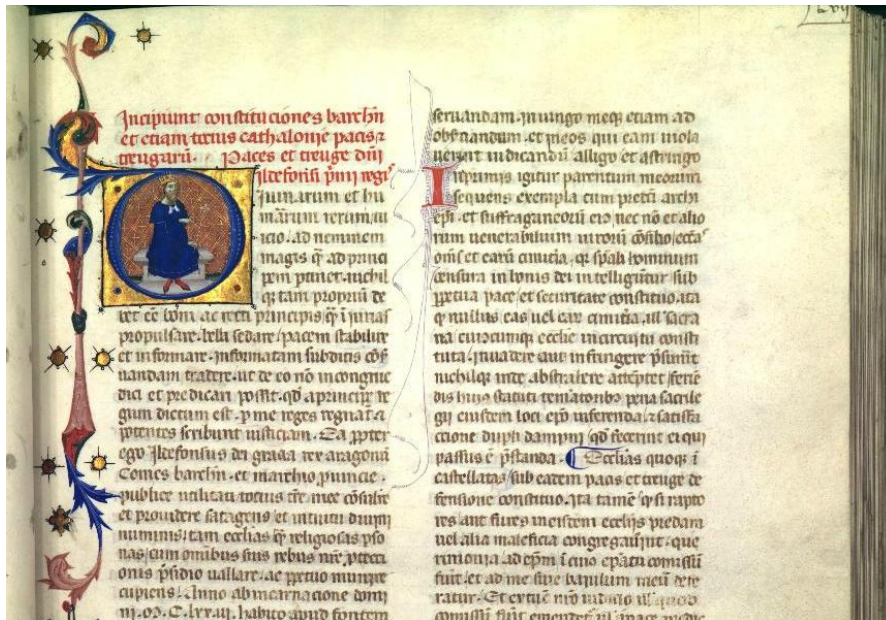 Incipiunt constituciones barchn
et etiam tocius cathalonie pacis ⁊
treugarū. Paces et treuge dn̄i
ildefonsi p̄mi regis
Diuinarum et hu
manarum rerum tu
icio. ad neminem
magis q̄ ad princi
pem ptinet. nichil
q̨ tam proprium de
bet eē boni ac recti principis q̄ iniurias
propulsare. bella sedare. pacem stabilire
et informare. informatam subditis cōs̄
uandam tradere. ut de eo nō incongrue
dici et predicari possit. qd̄ a principe re
gum dictum est. p me reges regnāt ⁊
potentes scribunt iusticiam. Ea ppter
ego Ildefonsus dei gracia rex aragonū
Comes barchn̄. et marchio puincie.
publice utilitati tocius tr̄e mee cōsulere
et prouidere satagens et intuitu diuini
numinis. tam ecclias q̄ religiosas pso
nas cum omnibus suis rebus nr̄e ptecti
onis p̄sidio uallare. ac ppetuo munire
cupiens. Anno ab incarnacione domi
ni. M. C. lxx. iii. habito apud fontem
seruandam. in uingo meq̨ etiam ad
obs̄uandum. et in eos qui eam uiola
uerint uindicandū alligo et astringo
Inprimis igitur parentum meorum
sequens exempla cum p̄dicti archi
ep̄i. et suffraganeorū eiꝰ. nec nō et alio
rum uenerabilium uirorū cōsilio. eccīas
om̄s et earū cimiteria. q̄ sp̄ali hominum
censura in bonis dei intelligūtur sub
ppetua pace et securitate constituo. ita
q̨ nullus eas uel eaꝝ cimiteria. ul̄ sacra
ria cuiuscumq̨ ecclīe in circuitu consti
tuta. inuadere aut infringere p̄sumāt
nichilq̨ inde abstrahere attēptet. ferie
dis huiꝰ statuti temeratoribꝰ pena sacrile
gii eiusdem loci ep̄o inferenda. ⁊ satisfa
ccione dupli dampni qd̄ fecerint ei qui
passus ē p̄standa. Ecclīas quoq̨ ī
castellatas sub eadem pacis et treuge de
fensione constituo. ita tamē q̨ si rapto
res aut fures in eisdem ecclīis predam
uel alia maleficia congregauerint. que
rimonia ad ep̄m ī cuiꝰ ep̄atu comissū
fuerit. et ad me siue baiulum meū defe
ratur. Et extūc nr̄o iudicio ul̄ quod
comissū fuerit emendet̄